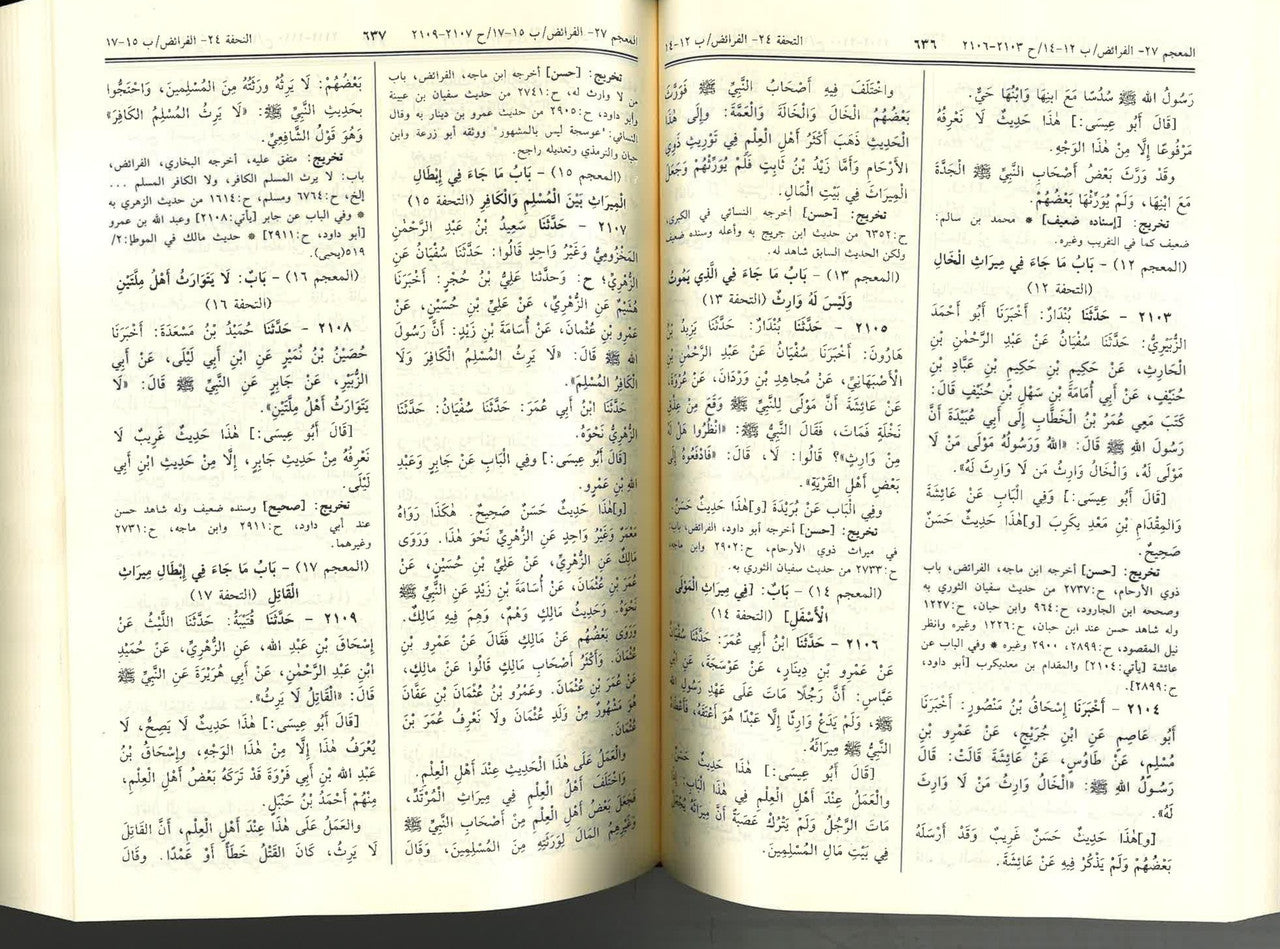 المعجم ٢٧- الفرائض/ ب ١٢-١٤/ ح ٢١٠٣-٢١٠٦
٦٣٦
التحفة ٢٤- الفرائض/ ب ١٢-١٤
رَسُولُ اللهِ ﷺ سُدُسًا مَعَ ابْنِهَا وَابْنُهَا حَيٌّ.
[قَالَ أَبُو عِيسَى:] هٰذَا حَدِيثٌ لَا نَعْرِفُهُ
مَرْفُوعًا إِلَّا مِنْ هٰذَا الْوَجْهِ.
وقَد وَرَّثَ بَعْضُ أَصْحَابِ النَّبِيِّ ﷺ الْجَدَّةَ
مَعَ ابْنِهَا، وَلَمْ يُوَرِّثْهَا بَعْضُهُمْ.
تخريج: [إسناده ضعيف] * محمد بن سالم:
ضعيف كما في التقريب وغيره.
(المعجم ١٢) - بَابُ مَا جَاءَ فِي مِيرَاثِ الْخَالِ
(التحفة ١٢)
٢١٠٣ - حَدَّثَنَا بُنْدَارٌ: أَخْبَرَنَا أَبُو أَحْمَدَ
الزُّبَيْرِيُّ: حَدَّثَنَا سُفْيَانُ عَنْ عَبْدِ الرَّحْمٰنِ بْنِ
الْحَارِثِ، عَنْ حَكِيمِ بْنِ حَكِيمِ بْنِ عَبَّادِ بْنِ
حُنَيْفٍ، عَنْ أَبِي أُمَامَةَ بْنِ سَهْلِ بْنِ حُنَيْفٍ قَالَ:
كَتَبَ مَعِي عُمَرُ بْنُ الْخَطَّابِ إِلَى أَبِي عُبَيْدَةَ أَنَّ
رَسُولَ اللهِ ﷺ قَالَ: «اللهُ وَرَسُولُهُ مَوْلَى مَنْ لَا
مَوْلَى لَهُ، وَالْخَالُ وَارِثُ مَن لَا وَارِثَ لَهُ».
[قَالَ أَبُو عِيسَى:] وَفِي الْبَابِ عَنْ عَائِشَةَ
وَالمِقْدَامِ بْنِ مَعْدِ يكَرِبَ [و]هٰذَا حَدِيثٌ حَسَنٌ
صَحِيحٌ.
تخريج: [حسن] أخرجه ابن ماجه، الفرائض، باب
ذوي الأرحام، ح:٢٧٣٧ من حديث سفيان الثوري به
وصححه ابن الجارود، ح:٩٦٤ وابن حبان، ح:١٢٢٧
وله شاهد حسن عند ابن حبان، ح:١٢٢٦ وغيره وانظر
نيل المقصود، ح:٢٨٩٩، ٢٩٠٠ وغيره * وفي الباب عن
عائشة [يأتي:٢١٠٤] والمقدام بن معديكرب [أبو داود،
ح:٢٨٩٩].
٢١٠٤ - أَخْبَرَنَا إِسْحَاقُ بْنُ مَنْصُورٍ: أَخْبَرَنَا
أَبُو عَاصِمٍ عَنِ ابْنِ جُرَيْجٍ، عَنْ عَمْرِو بْنِ
مُسْلِمٍ، عَنْ طَاوُسٍ، عَنْ عَائِشَةَ قَالَتْ: قَالَ
رَسُولُ اللهِ ﷺ: «الْخَالُ وَارِثُ مَنْ لَا وَارِثَ
لَهُ».
[و]هٰذَا حَدِيثٌ حَسَنٌ غَرِيبٌ وَقَد أَرْسَلَهُ
بَعْضُهُمْ وَلَمْ يَذْكُرْ فِيهِ عَنْ عَائِشَةَ.
واخْتَلَفَ فِيهِ أَصْحَابُ النَّبِيِّ ﷺ فَوَرَّثَ
بَعْضُهُمُ الْخَالَ وَالْخَالَةَ وَالْعَمَّةَ: وإِلَى هٰذَا
الْحَدِيثِ ذَهَبَ أَكْثَرُ أَهْلِ الْعِلْمِ فِي تَوْرِيثِ ذَوِي
الأَرْحَامِ وَأَمَّا زَيْدُ بْنُ ثَابِتٍ فَلَمْ يُوَرِّثْهُمْ وَجَعَلَ
الْمِيرَاثَ فِي بَيْتِ الْمَالِ.
تخريج: [حسن] أخرجه النسائي في الكبرى،
ح:٦٣٥٢ من حديث ابن جريج به وأعله وسنده ضعيف
ولكن الحديث السابق شاهد له.
(المعجم ١٣) - بَابُ مَا جَاءَ فِي الَّذِي يَمُوتُ
وَلَيْسَ لَهُ وَارِثٌ (التحفة ١٣)
٢١٠٥ - حَدَّثَنَا بُنْدَارٌ: حَدَّثَنَا يَزِيدُ بْنُ
هَارُونَ: أَخْبَرَنَا سُفْيَانُ عَنْ عَبْدِ الرَّحْمٰنِ بْنِ
الأَصْبَهَانِيِّ، عَنْ مُجاهِدِ بْنِ وَرْدَانَ، عَنْ عُرْوَةَ،
عَنْ عَائِشَةَ أَنَّ مَوْلًى لِلنَّبِيِّ ﷺ وَقَعَ مِنْ عِذْقِ
نَخْلَةٍ فَمَاتَ، فَقَالَ النَّبِيُّ ﷺ: «انْظُرُوا هَلْ لَهُ
مِنْ وَارِثٍ»؟ قَالُوا: لَا، قَالَ: «فَادْفَعُوهُ إِلَى
بَعْضِ أَهْلِ الْقَرْيَةِ».
وفِي الْبَابِ عَنْ بُرَيْدَةَ [و]هٰذَا حَدِيثٌ حَسَنٌ.
تخريج: [حسن] أخرجه أبو داود، الفرائض، باب:
في ميراث ذوي الأرحام، ح:٢٩٠٢ وابن ماجه،
ح:٢٧٣٣ من حديث سفيان الثوري به.
(المعجم ١٤) - بَابٌ: [فِي مِيرَاثِ الْمَوْلَى
الْأَسْفَلِ] (التحفة ١٤)
٢١٠٦ - حَدَّثَنَا ابْنُ أَبِي عُمَرَ: حَدَّثَنَا سُفْيَانُ
عَنْ عَمْرِو بْنِ دِينَارٍ، عَنْ عَوْسَجَةَ، عَنِ ابْنِ
عَبَّاسٍ: أَنَّ رَجُلًا مَاتَ عَلَى عَهْدِ رَسُولِ اللهِ
ﷺ، وَلَمْ يَدَعْ وَارِثًا إِلَّا عَبْدًا هُوَ أَعْتَقَهُ، فَأَعْطَاهُ
النَّبِيُّ ﷺ مِيرَاثَهُ.
[قَالَ أَبُو عِيسَى:] هٰذَا حَدِيثٌ حَسَنٌ
والْعَمَلُ عِنْدَ أَهْلِ الْعِلْمِ فِي هٰذَا الْبَابِ: إِذَا
مَاتَ الرَّجُلُ وَلَمْ يَتْرُكْ عَصَبَةً أَنَّ مِيرَاثَهُ يُجْعَلُ
فِي بَيْتِ مَالِ الْمُسْلِمِينَ.
المعجم ٢٧- الفرائض/ ب ١٥-١٧/ ح ٢١٠٧-٢١٠٩
٦٣٧
التحفة ٢٤- الفرائض/ ب ١٥-١٧
تخريج: [حسن] أخرجه ابن ماجه، الفرائض، باب
من لا وارث له، ح:٢٧٤١ من حديث سفيان بن عيينة
وأبو داود، ح:٢٩٠٥ من حديث عمرو بن دينار به وقال
النسائي: "عوسجة ليس بالمشهور" ووثقه أبو زرعة وابن
حبان والترمذي وتعديله راجح.
(المعجم ١٥) - بَابُ مَا جَاءَ فِي إِبْطَالِ
الْمِيرَاثِ بَيْنَ الْمُسْلِمِ وَالْكَافِرِ (التحفة ١٥)
٢١٠٧ - حَدَّثَنَا سَعِيدُ بْنُ عَبْدِ الرَّحْمٰنِ
الْمَخْزُومِيُّ وَغَيْرُ وَاحِدٍ قَالُوا: حَدَّثَنَا سُفْيَانُ عَنِ
الزُّهْرِيِّ؛ ح: وَحَدَّثنا عَلِيُّ بْنُ حُجْرٍ: أَخْبَرَنَا
هُشَيْمٌ عَنِ الزُّهْرِيِّ، عَنْ عَلِيِّ بْنِ حُسَيْنٍ، عَنْ
عَمْرِو بْنِ عُثْمَانَ، عَنْ أُسَامَةَ بْنِ زَيْدٍ: أَنَّ رَسُولَ
اللهِ ﷺ قَالَ: «لَا يَرِثُ الْمُسْلِمُ الْكَافِرَ وَلَا
الْكَافِرُ الْمُسْلِمَ».
حَدَّثَنَا ابْنُ أَبِي عُمَرَ: حَدَّثَنَا سُفْيَانُ: حَدَّثَنَا
الزُّهْرِيُّ نَحْوَهُ.
[قَالَ أَبُو عِيسَى:] وفِي الْبَابِ عَنْ جَابِرٍ وَعَبْدِ
اللهِ بْنِ عَمْرٍو.
[و]هٰذَا حَدِيثٌ حَسَنٌ صَحِيحٌ. هٰكَذَا رَوَاهُ
مَعْمَرٌ وَغَيْرُ وَاحِدٍ عَنِ الزُّهْرِيِّ نَحْوَ هٰذَا. وَرَوَى
مَالِكٌ عَنِ الزُّهْرِيِّ، عَنْ عَلِيِّ بْنِ حُسَيْنٍ، عَنْ
عُمَرَ بْنِ عُثْمَانَ، عَنْ أُسَامَةَ بْنِ زَيْدٍ عَنِ النَّبِيِّ ﷺ
نَحْوَهُ. وَحَدِيثُ مَالِكٍ وَهْمٌ، وَهِمَ فِيهِ مَالِكٌ.
وَرَوَى بَعْضُهُمْ عَنْ مَالِكٍ فَقَالَ عَنْ عَمْرِو بْنِ
عُثْمَانَ. وَأَكْثَرُ أَصْحَابِ مَالِكٍ قَالُوا عَنْ مَالِكٍ،
عَنْ عُمَرَ بْنِ عُثْمَانَ. وعَمْرُو بْنُ عُثْمَانَ بْنِ عَفَّانَ
هُوَ مَشْهُورٌ مِنْ وَلَدِ عُثْمَانَ ولَا نَعْرِفُ عُمَرَ بْنَ
عُثْمَانَ.
والْعَمَلُ عَلَى هٰذَا الْحَدِيثِ عِنْدَ أَهْلِ الْعِلْمِ.
وَاخْتَلَفَ أَهْلُ الْعِلْمِ فِي مِيرَاثِ الْمُرْتَدِّ،
فَجَعَلَ بَعْضُ أَهْلِ الْعِلْمِ مِنْ أَصْحَابِ النَّبِيِّ ﷺ
وَغَيْرِهِمُ الْمَالَ لِوَرَثَتِهِ مِنَ الْمُسْلِمِينَ، وَقَالَ
بَعْضُهُمْ: لَا يَرِثُهُ وَرَثَتُهُ مِنَ الْمُسْلِمِينَ، وَاحْتَجُّوا
بِحَدِيثِ النَّبِيِّ ﷺ: «لَا يَرِثُ الْمُسْلِمُ الْكَافِرَ»
وَهُوَ قَوْلُ الشَّافِعِيِّ.
تخريج: متفق عليه، أخرجه البخاري، الفرائض،
باب: لا يرث المسلم الكافر، ولا الكافر المسلم ...
إلخ، ح:٦٧٦٤ ومسلم، ح:١٦١٤ من حديث الزهري به
* وفي الباب عن جابر [يأتي:٢١٠٨] وعبد الله بن عمرو
[أبو داود، ح:٢٩١١] * حديث مالك في الموطإ:٢/
٥١٩(يحيى).
(المعجم ١٦) - بَابٌ: لَا يَتَوَارَثُ أَهْلُ مِلَّتَيْنِ
(التحفة ١٦)
٢١٠٨ - حَدَّثَنَا حُمَيْدُ بْنُ مَسْعَدَةَ: أَخْبَرَنَا
حُصَيْنُ بْنُ نُمَيْرٍ عَنِ ابْنِ أَبِي لَيْلَى، عَنْ أَبِي
الزُّبَيْرِ، عَنْ جَابِرٍ عَنِ النَّبِيِّ ﷺ قَالَ: «لَا
يَتَوَارَثُ أَهْلُ مِلَّتَيْنِ».
[قَالَ أَبُو عِيسَى:] هٰذَا حَدِيثٌ غَرِيبٌ لَا
نَعْرِفُهُ مِنْ حَدِيثِ جَابِرٍ، إِلَّا مِنْ حَدِيثِ ابْنِ أَبِي
لَيْلَى.
تخريج: [صحيح] وسنده ضعيف وله شاهد حسن
عند أبي داود، ح:٢٩١١ وابن ماجه، ح:٢٧٣١
وغيرهما.
(المعجم ١٧) - بَابُ مَا جَاءَ فِي إِبْطَالِ مِيرَاثِ
الْقَاتِلِ (التحفة ١٧)
٢١٠٩ - حَدَّثَنَا قُتَيْبَةُ: حَدَّثَنَا اللَّيْثُ عَنْ
إِسْحَاقَ بْنِ عَبْدِ اللهِ، عَنِ الزُّهْرِيِّ، عَنْ حُمَيْدِ
ابْنِ عَبْدِ الرَّحْمٰنِ، عَنْ أَبِي هُرَيْرَةَ عَنِ النَّبِيِّ ﷺ
قَالَ: «الْقَاتِلُ لَا يَرِثُ».
[قَالَ أَبُو عِيسَى:] هٰذَا حَدِيثٌ لَا يَصِحُّ، لَا
يُعْرَفُ هٰذَا إِلَّا مِنْ هٰذَا الْوَجْهِ، وإِسْحَاقُ بْنُ
عَبْدِ اللهِ بْنِ أَبِي فَرْوَةَ قَدْ تَرَكَهُ بَعْضُ أَهْلِ الْعِلْمِ،
مِنْهُمْ أَحْمَدُ بْنُ حَنْبَلٍ.
والْعَمَلُ عَلَى هٰذَا عِنْدَ أَهْلِ الْعِلْمِ، أَنَّ القَاتِلَ
لَا يَرِثُ، كَانَ الْقَتْلُ خَطَأً أَوْ عَمْدًا. وقَالَ